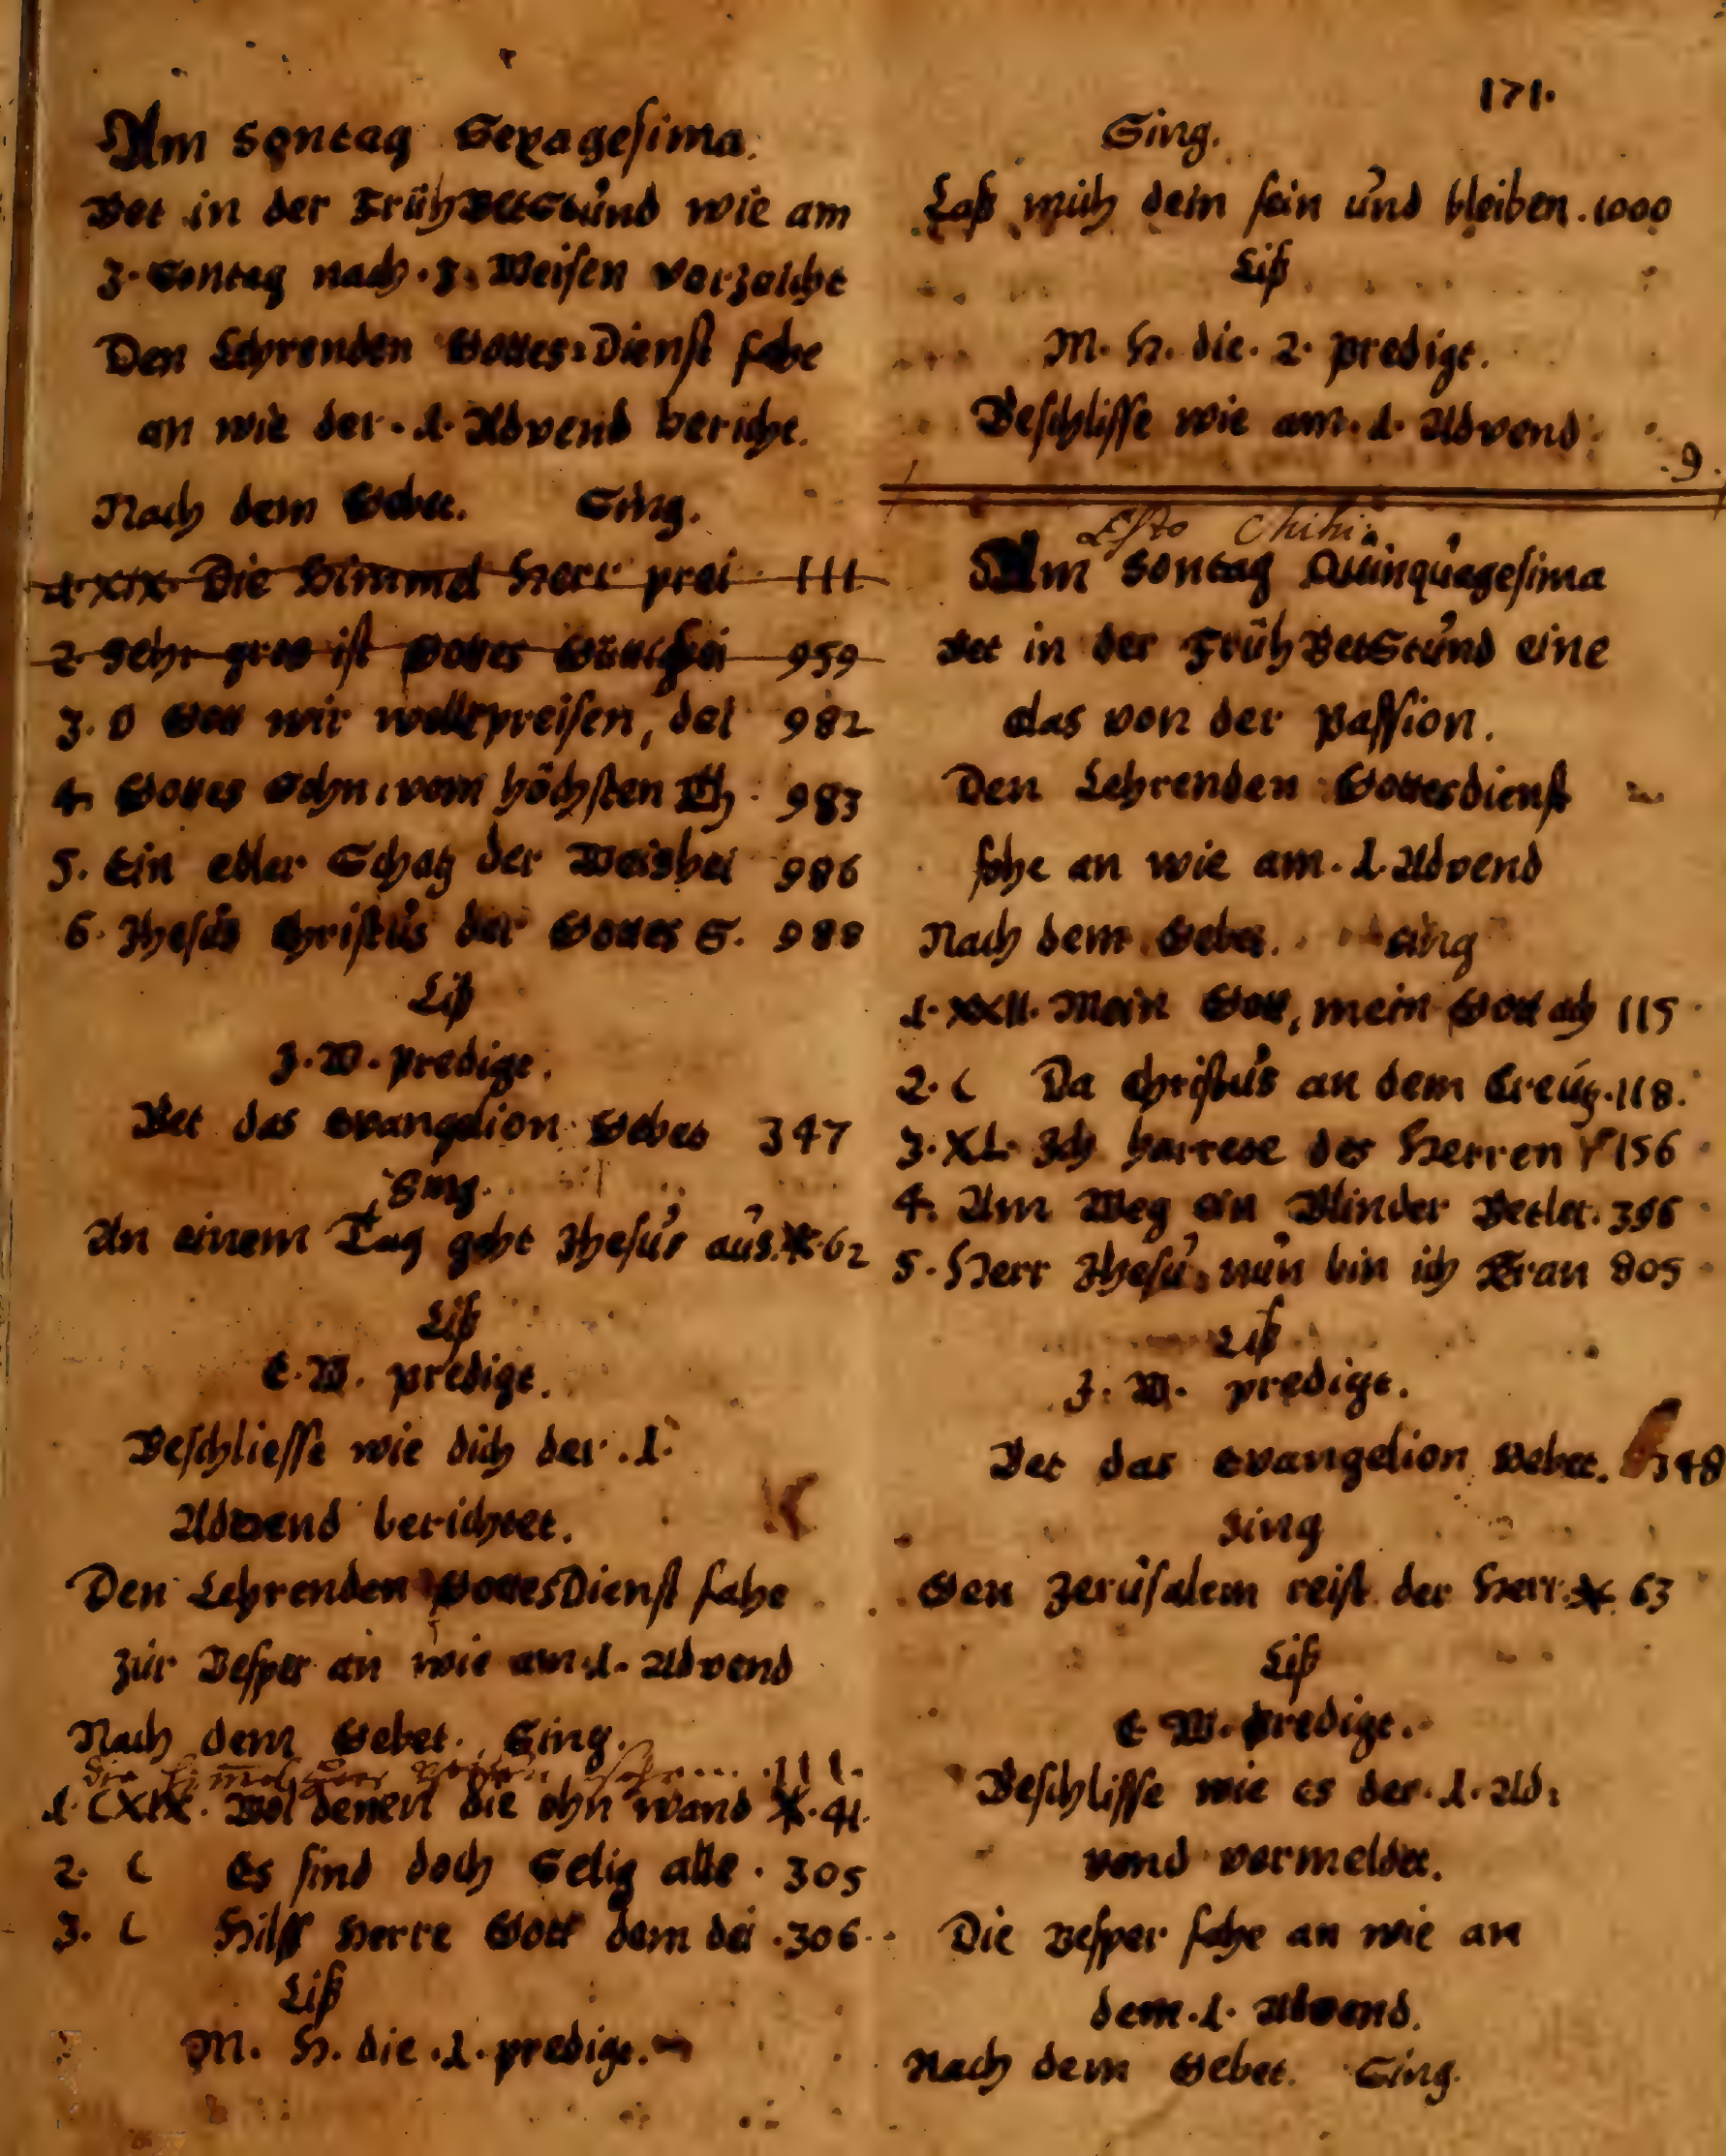 Am Sontag Sexagesima.
Bet in der FrühBetStund wie am
3. Sontag nach. 3. Weisen verzeicht
Den Lehrenden Gottes=Dienst fahe
an wie der. 1. Advend bericht.
Nach dem Gebet. Sing.
1. XIX. Die Himmel Herr prei 111
2 Sehr gros ist Gottes 959
3. O Gott wir preisen, del 982
4. Gottes Sohn, vom höchsten Th 983
5. Ein edler Schatz der Weishei 986
6. Jhesus Christus der Gottes S. 988
Liß
J. W. predigt.
Bet das Evangelion Gebet 347
Sing.
An einem Tag geht Jhesus aus. 62
Liß
E. W. predigt.
Beschliesse wie dich der .1.
Advend berichtet.
Den Lehrenden GottesDienst fahe
zur Vesper an wie am .1. Advend
Nach dem Gebet. Sing.
111.
1. CXIX. Wol denen die ohn wand 41.
2. C Es sind doch Selig alle. 305
3. C Hilff Herre Gott dem dei .306.
Liß
M. H. die .1. predigt.
171.
Sing.
Laß mich dein sein und bleiben. 1000
Liß
M. H. die. 2. predigt.
Beschlisse wie am. 1. Advend
9.
Esto Mihi.
Am Sontag Quinquagesima
Bet in der FrühBetStund eine
das von der Passion.
Den Lehrenden Gottesdienst
fahe an wie am. 1. Advend
Nach dem Gebet. Sing
1. XXII. Mein Gott, mein Gott ach 115
2. C Da Christus an dem Creuz. 118.
3. XL. Ich harrete des Herren 156
4. Am Weg ein Blinder Betler. 396
5. Herr Jhesu, nun bin ich Kran 805
Liß
J. W. predigt.
Bet das Evangelion Gebet. 348
Sing
Gen Jerusalem reist der Herr. 63
Liß
E W. predigt.
Beschlisse wie es der. 1. Ad:
vend vermeldet.
Die Vesper fahe an wie an
dem. 1. Advend.
Nach dem Gebet. Sing.